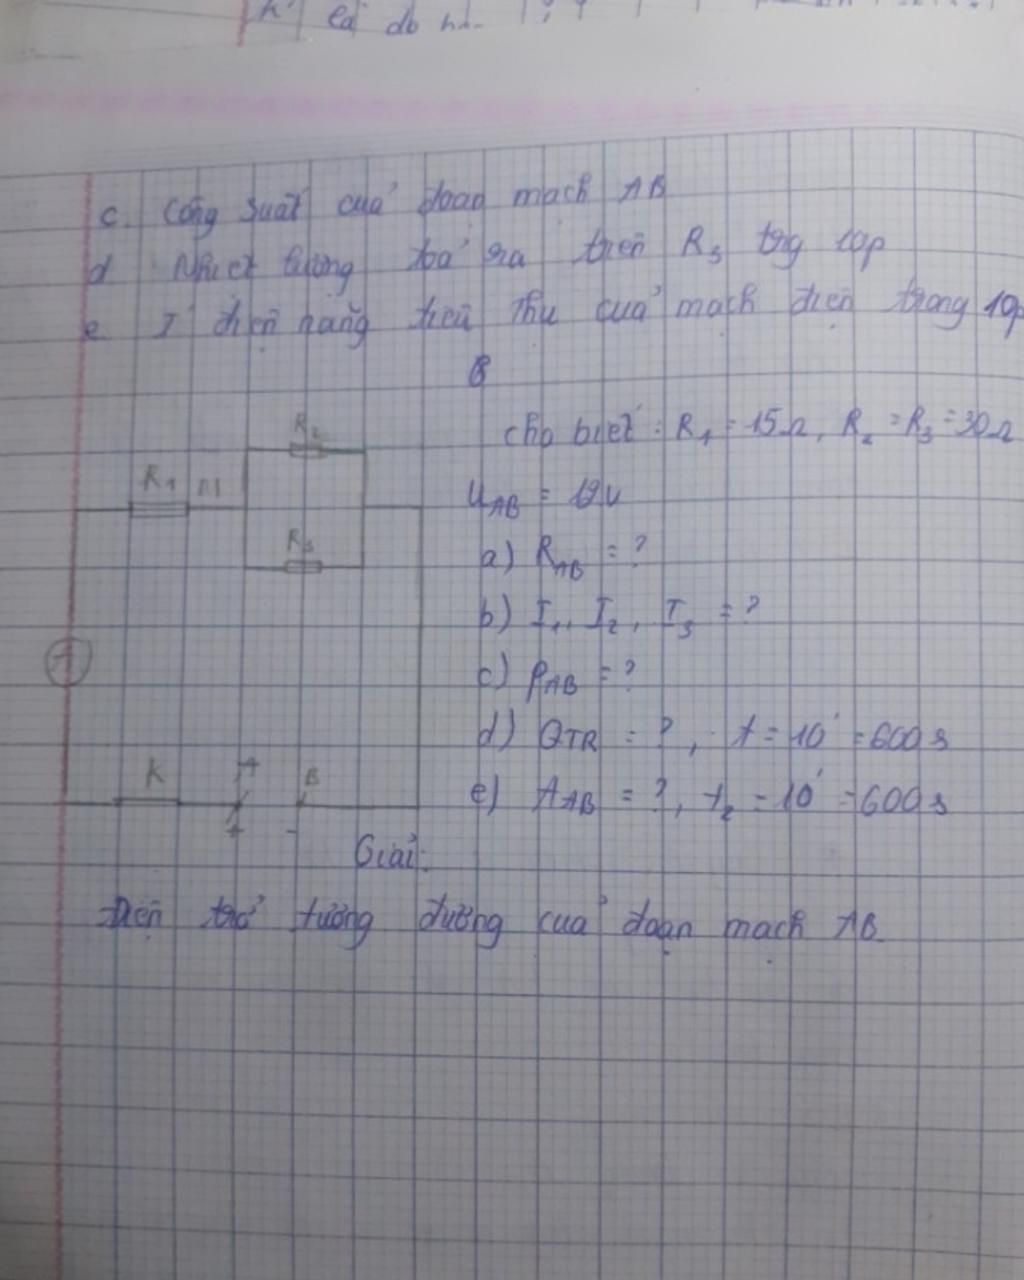 c. Công suất của đoạn mạch AB
d Nhiệt lượng toả ra trên R3 trg 10p
e T điện năng tiêu thụ của mạch điện trong 10p
B
Cho biết: R1 = 15Ω, R2 = R3 = 30Ω
R2
R1 M
UAB = 12V
R3
a) RAB = ?
b) I1, I2, I3 = ?
A
c) PAB = ?
d) QTR = ?, t = 10' = 600s
K A B
e) AAB = ?, t2 = 10' = 600s
+ -
Giải:
Điện trở tương đương của đoạn mạch AB